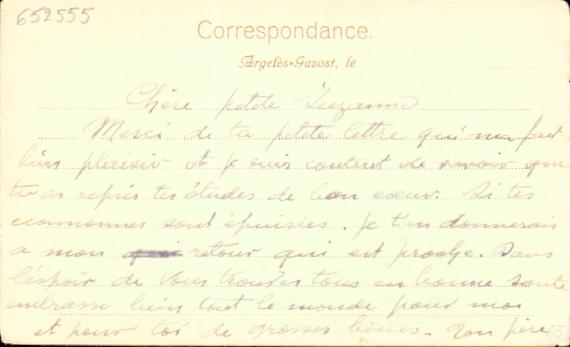 652555
Correspondance.
Argelès-Gazost, le
Chère petite Suzanne
Merci de ta petite lettre qui m'a fait
bien plaisir et je suis content de savoir que
tu as repris tes études de bon coeur. Si tes
économies sont épuisées. Je t'en donnerais
a mon retour qui est proche. Dans
l'espoir de vous trouver tous en bonne santé
embrasse bien tout le monde pour moi
et pour toi de grosses bises. Ton père